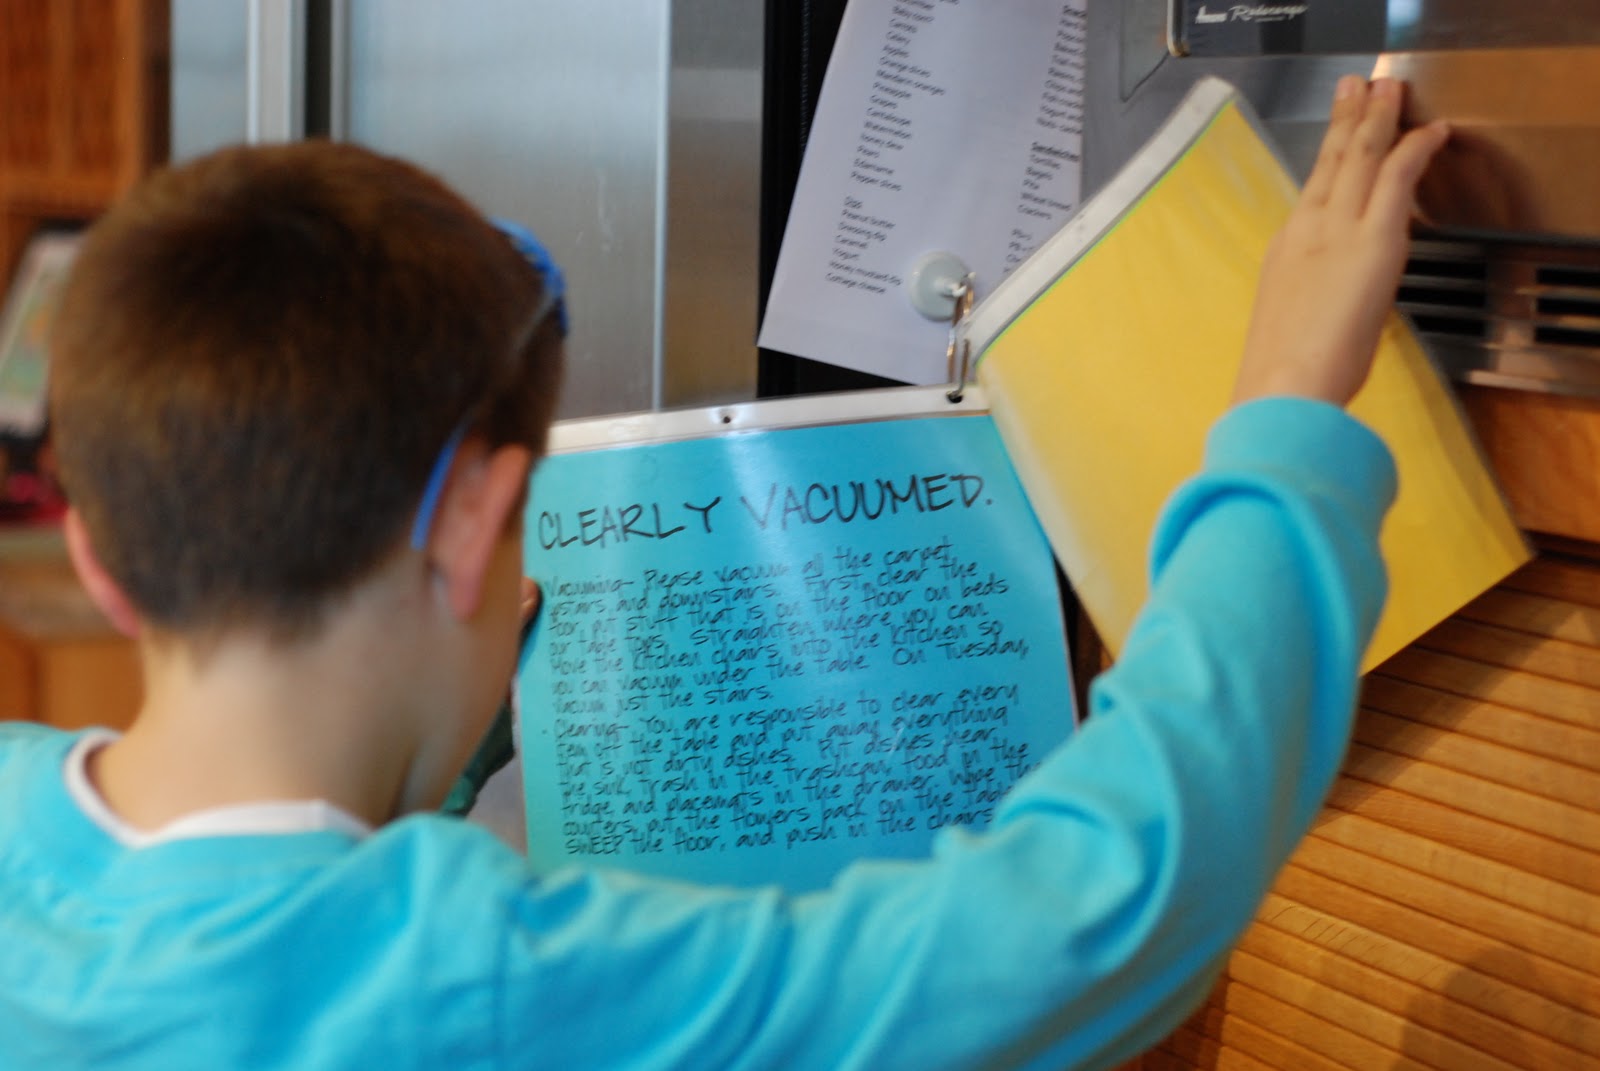 Baby corn
Carrots
Celery
Apples
Orange slices
Mandarin oranges
Pineapple
Grapes
Cantaloupe
Watermelon
Honey dew
Pears
Edamame
Pepper slices
Dips
Peanut butter
Dressing dip
Caramel
Yogurt
Honey mustard dip
Cottage cheese
Sandwiches
Tortillas
Bagels
Pita
Wheat bread
Crackers
CLEARLY VACUUMED.
Vacuuming- Please vacuum all the carpet
upstairs and downstairs. First clear the
floor, put stuff that is on the floor on beds
our table tops. Straighten where you can.
Move the kitchen chairs into the kitchen so
you can vacuum under the table. On Tuesday,
vacuum just the stairs.
Clearing- You are responsible to clear every
item off the table and put away everything
that is not dirty dishes. Put dishes near
the sink, trash in the trashcan, food in the
fridge, and placemats in the drawer. Wipe the
counters, put the flowers back on the table,
SWEEP the floor, and push in the chairs